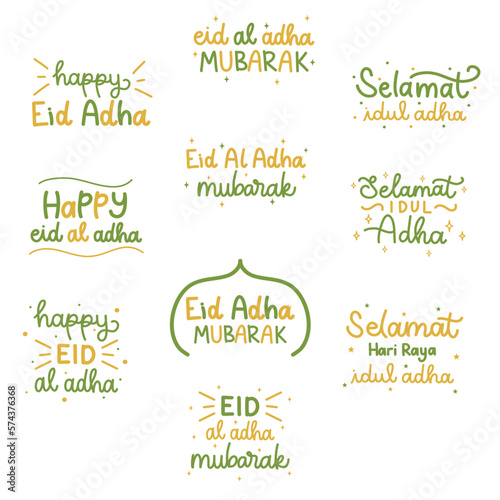 happy
Eid Adha
HaPPY
eid al adha
happy
EID
al adha
eid al adha
MUBARAK
Eid Al Adha
mubarak
Eid Adha
MUBARAK
EID
al adha
mubarak
Selamat
idul adha
Selamat
IDUL
Adha
Selamat
Hari Raya
idul adha
Adobe Stock | #574376368